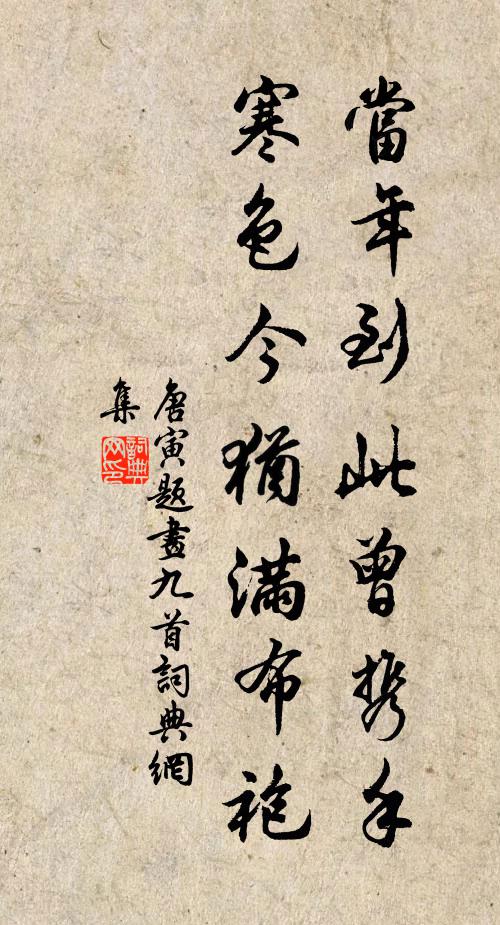 當年到此曾携手
寒色今猶滿布袍
唐寅題畫九首詞典網
集
詞典網印